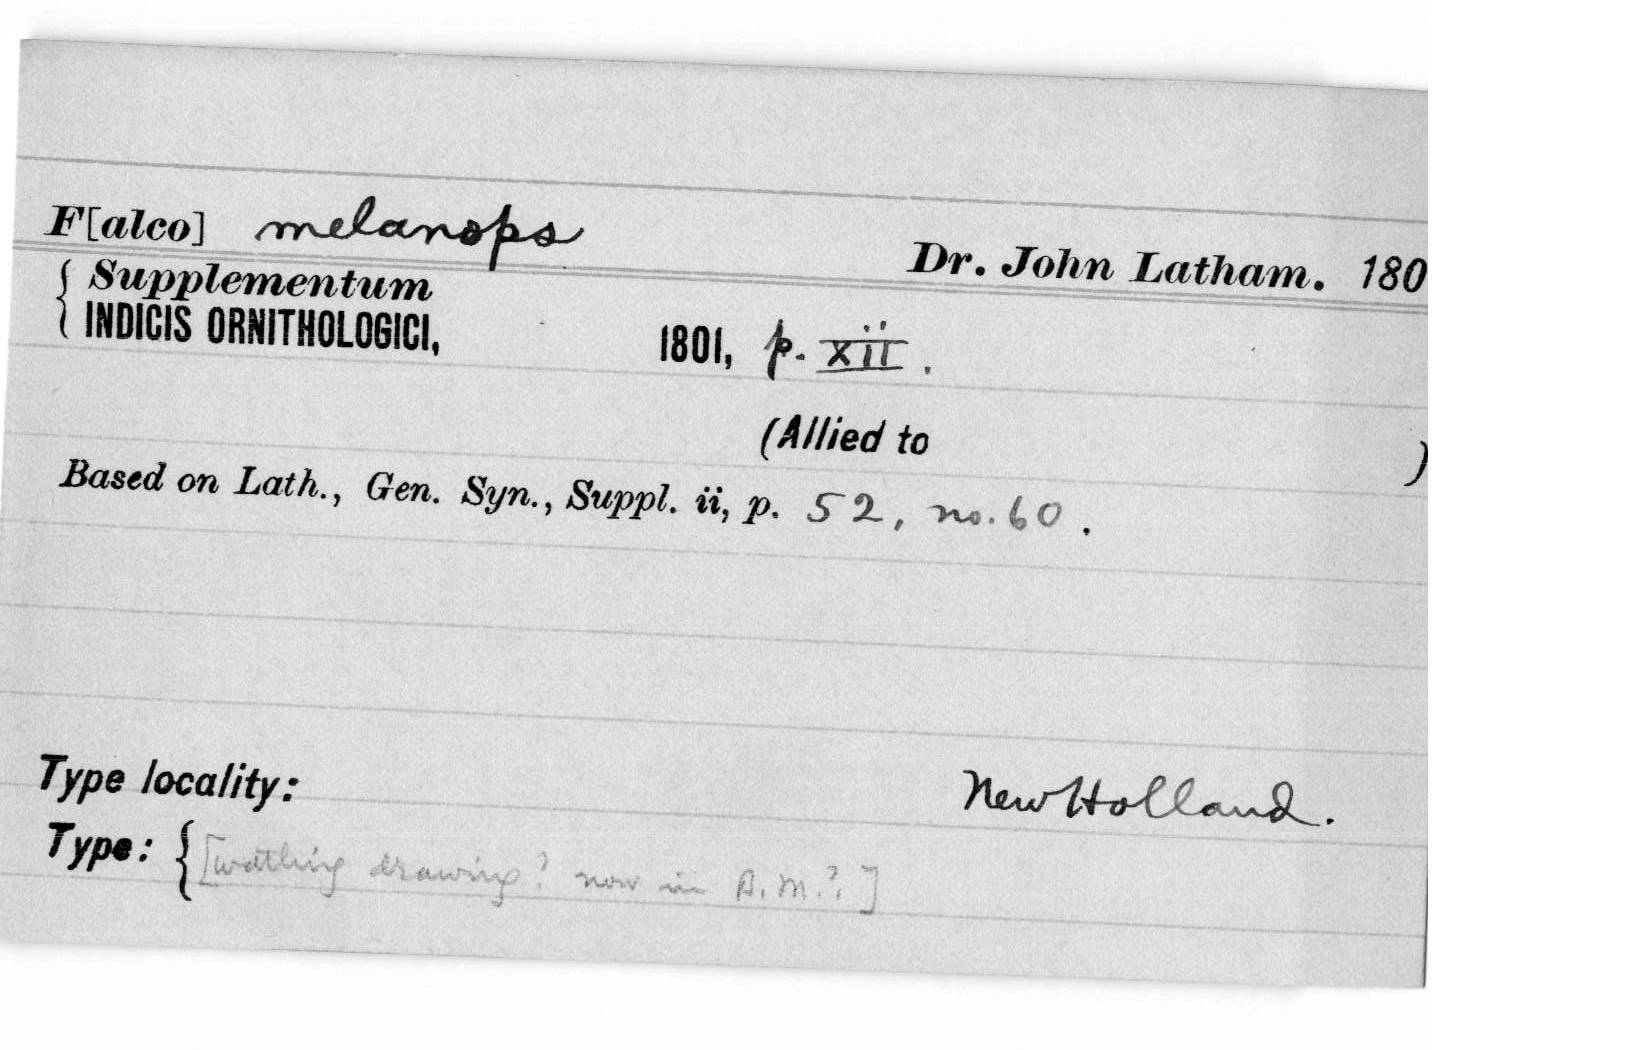 F[alco] melanops
Dr. John Latham. 180
Supplementum
INDICIS ORNITHOLOGICI, 1801, p. xii.
(Allied to )
Based on Lath., Gen. Syn., Suppl. ii, p. 52, no. 60.
Type locality: New Holland.
Type: {[watling drawing? now in B.M.?]